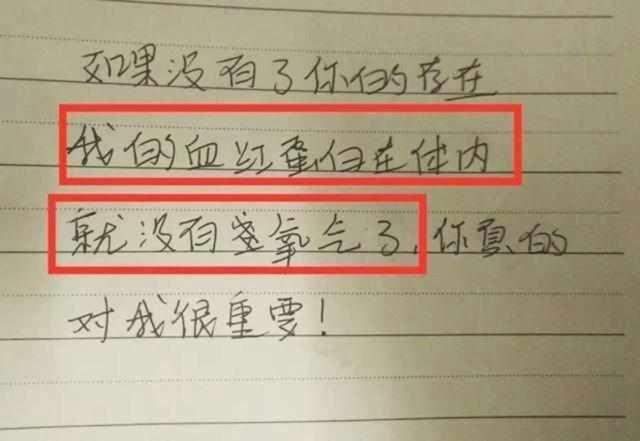 如果没有了你的存在
我的血红蛋白在体内
就没有氧气了,你真的
对我很重要!